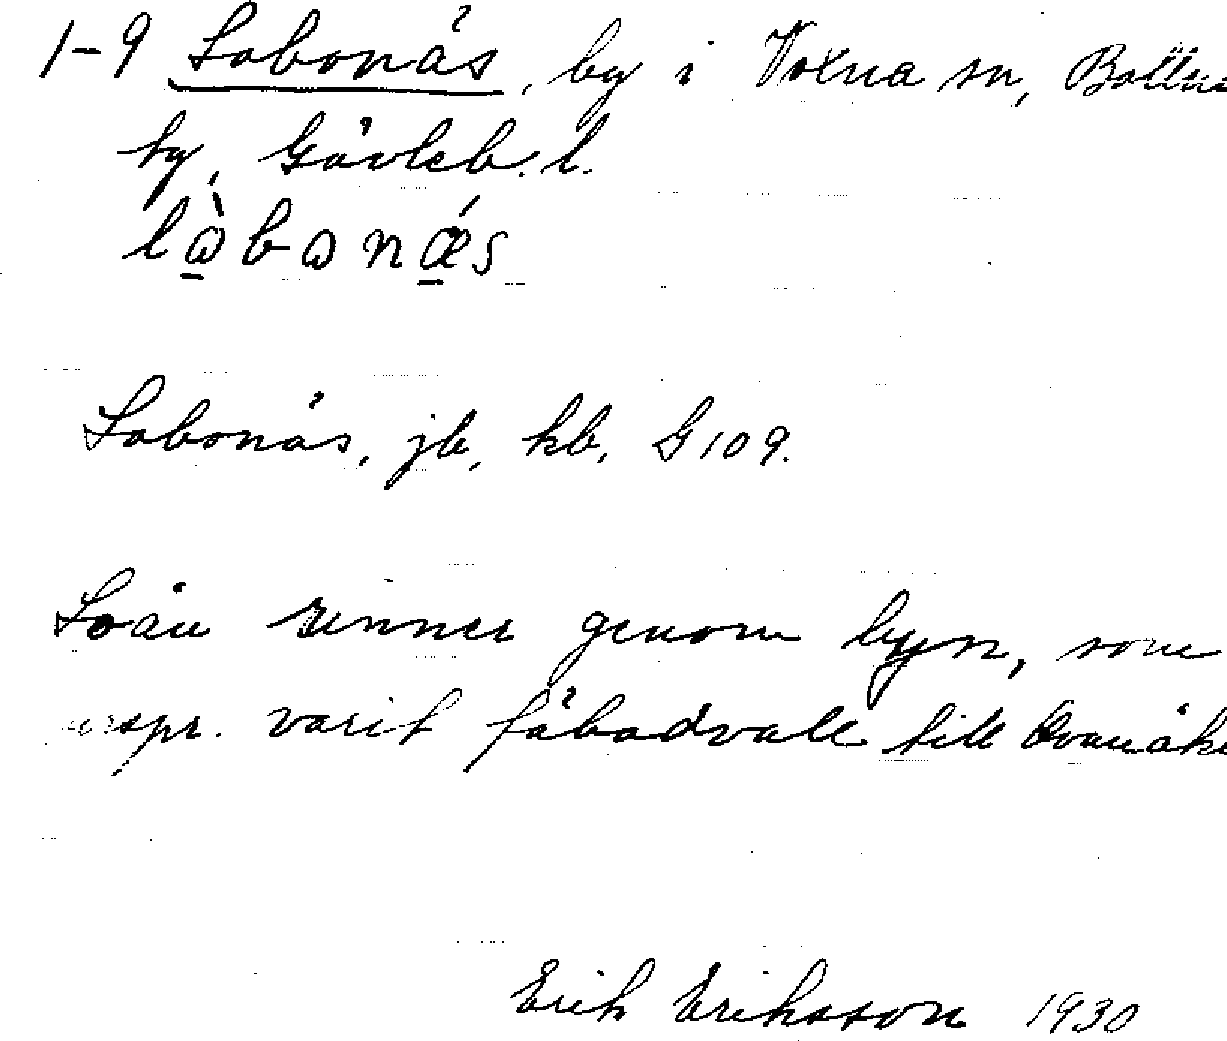 1-9 Lobonäs, by i Voxna sn, Bollnäs
tg, Gävleb. l.
Lobonäs, jb, kb, G 109.
Loån rinner genom byn, som
urspr. varit fäbodvall till Ovanåke
Erik Eriksson 1930